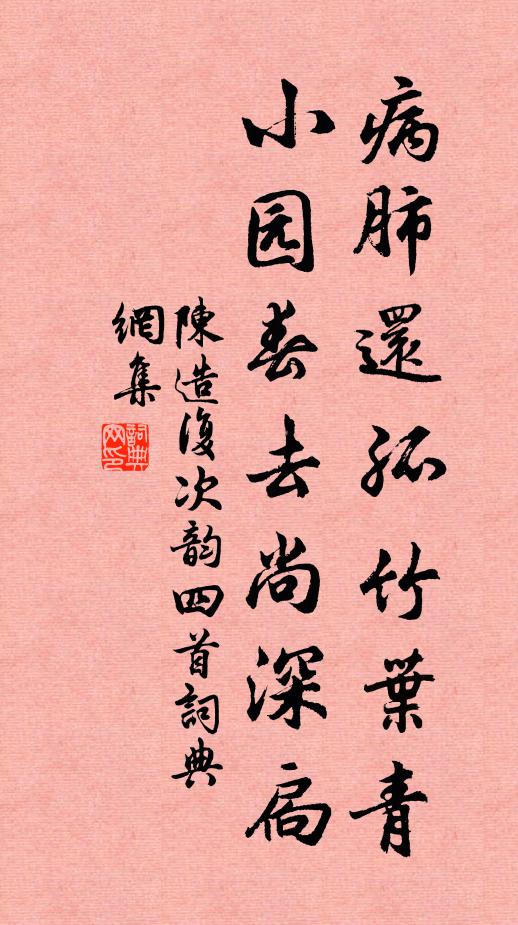 病肺還孤竹葉青
小园春去尚深扃
陳造復次韵四首詞典
網集
詞典
网印